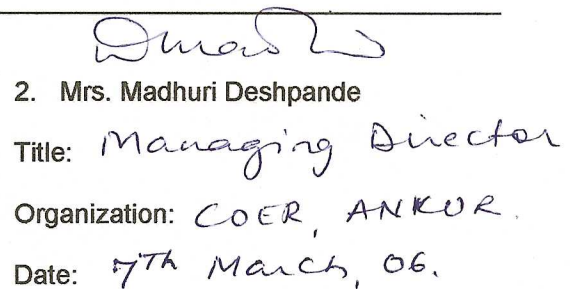 2. Mrs. Madhuri Deshpande
Title: Managing Director
Organization: COER, ANKUR.
Date: 7Th March, 06.